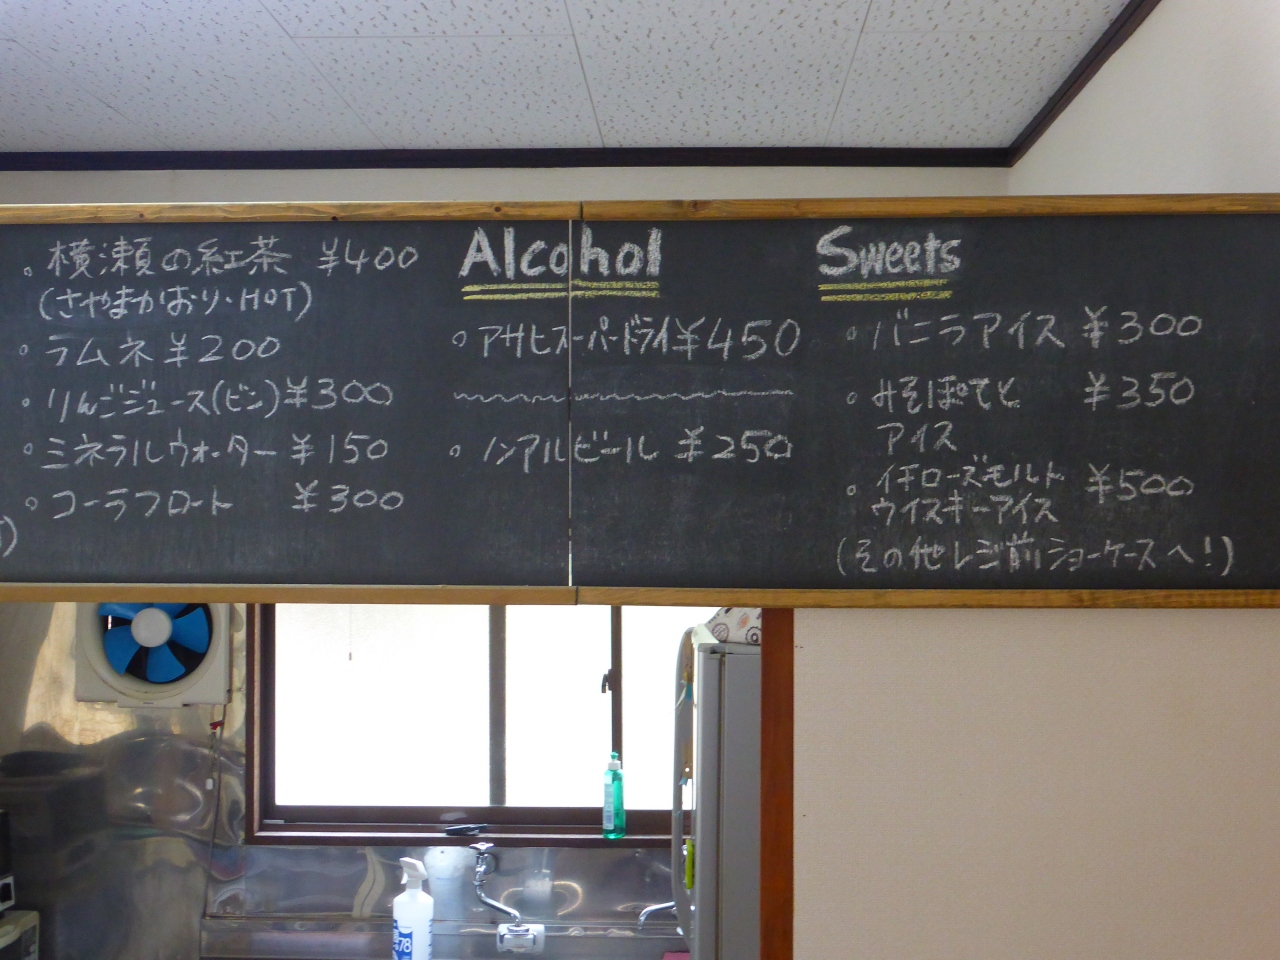 。横瀬の紅茶 ¥400
(さやまかおり・HOT)
。ラムネ ¥200
。りんごジュース(ビン) ¥300
。ミネラルウォーター ¥150
。コーラフロート ¥300
Alcohol
。アサヒスーパードライ ¥450
。ノンアルビール ¥250
Sweets
。バニラアイス ¥300
。みそぽてと ¥350
アイス
。イチローズモルト ¥500
ウイスキーアイス
(その他レジ前ショーケースへ!)
78